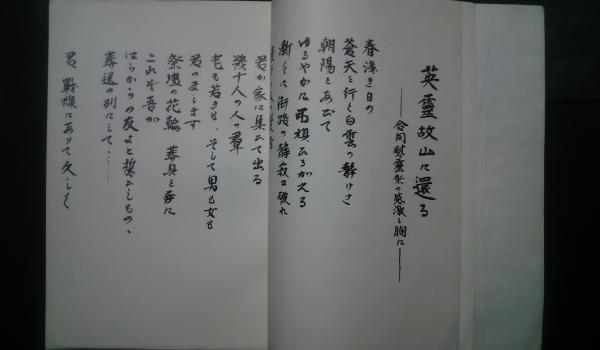 英靈故山に還る
――合同慰靈祭の感激を胸に――
春浅き日の
蒼天を行く白雲の静けさ
朝陽をあびて
ゆるやかに弔旗ひるがえる
漸くに街路の静寂は破れ
君が家に集ひて出る
幾十人の人の群
老も若きも、そして男も女も
君のまします
祭壇の花輪 葬具を手に
これぞ吾が
はらからの友よと誓ひしもの、
葬送の列にして、……
君 戰線にありて久しく